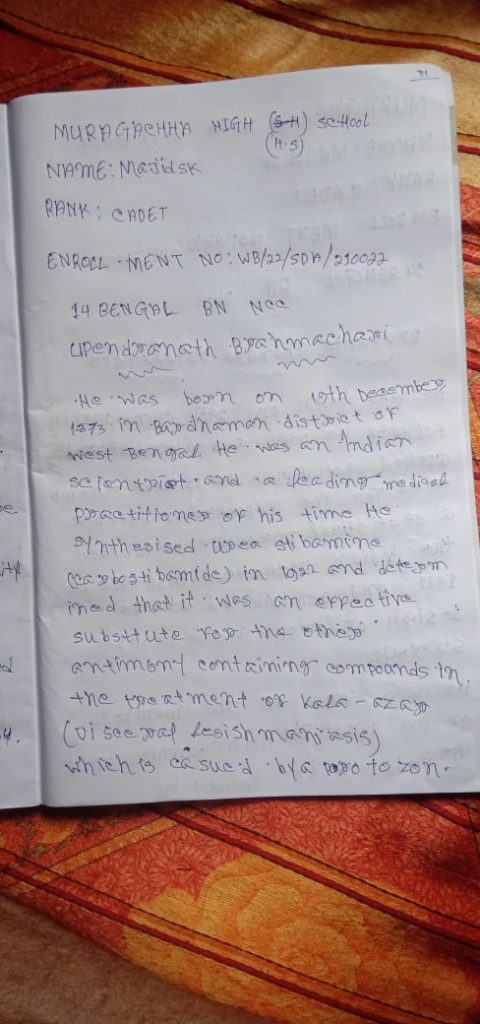 31
MURAGACHHA HIGH (S-H) SCHOOL
(H.S)
NAME: Majid sk
RANK: CADET
ENROLL-MENT NO: WB/22/SDA/210022
14 BENGAL BN NCC
Upendranath Brahmachari
He was born on 19th December
1873 in Bardhaman district of
West Bengal. He was an Indian
scientrist and a leading medical
practitioner of his time He
synthesised urea stibamine
(carbostibamide) in 1922 and determ
ined that it was an effective
substtute for the other
antimony containing compounds in
the treatment of Kala-azar
(visceral Lesishmaniasis)
which is casued by a proto zon.
ity
ed
y.